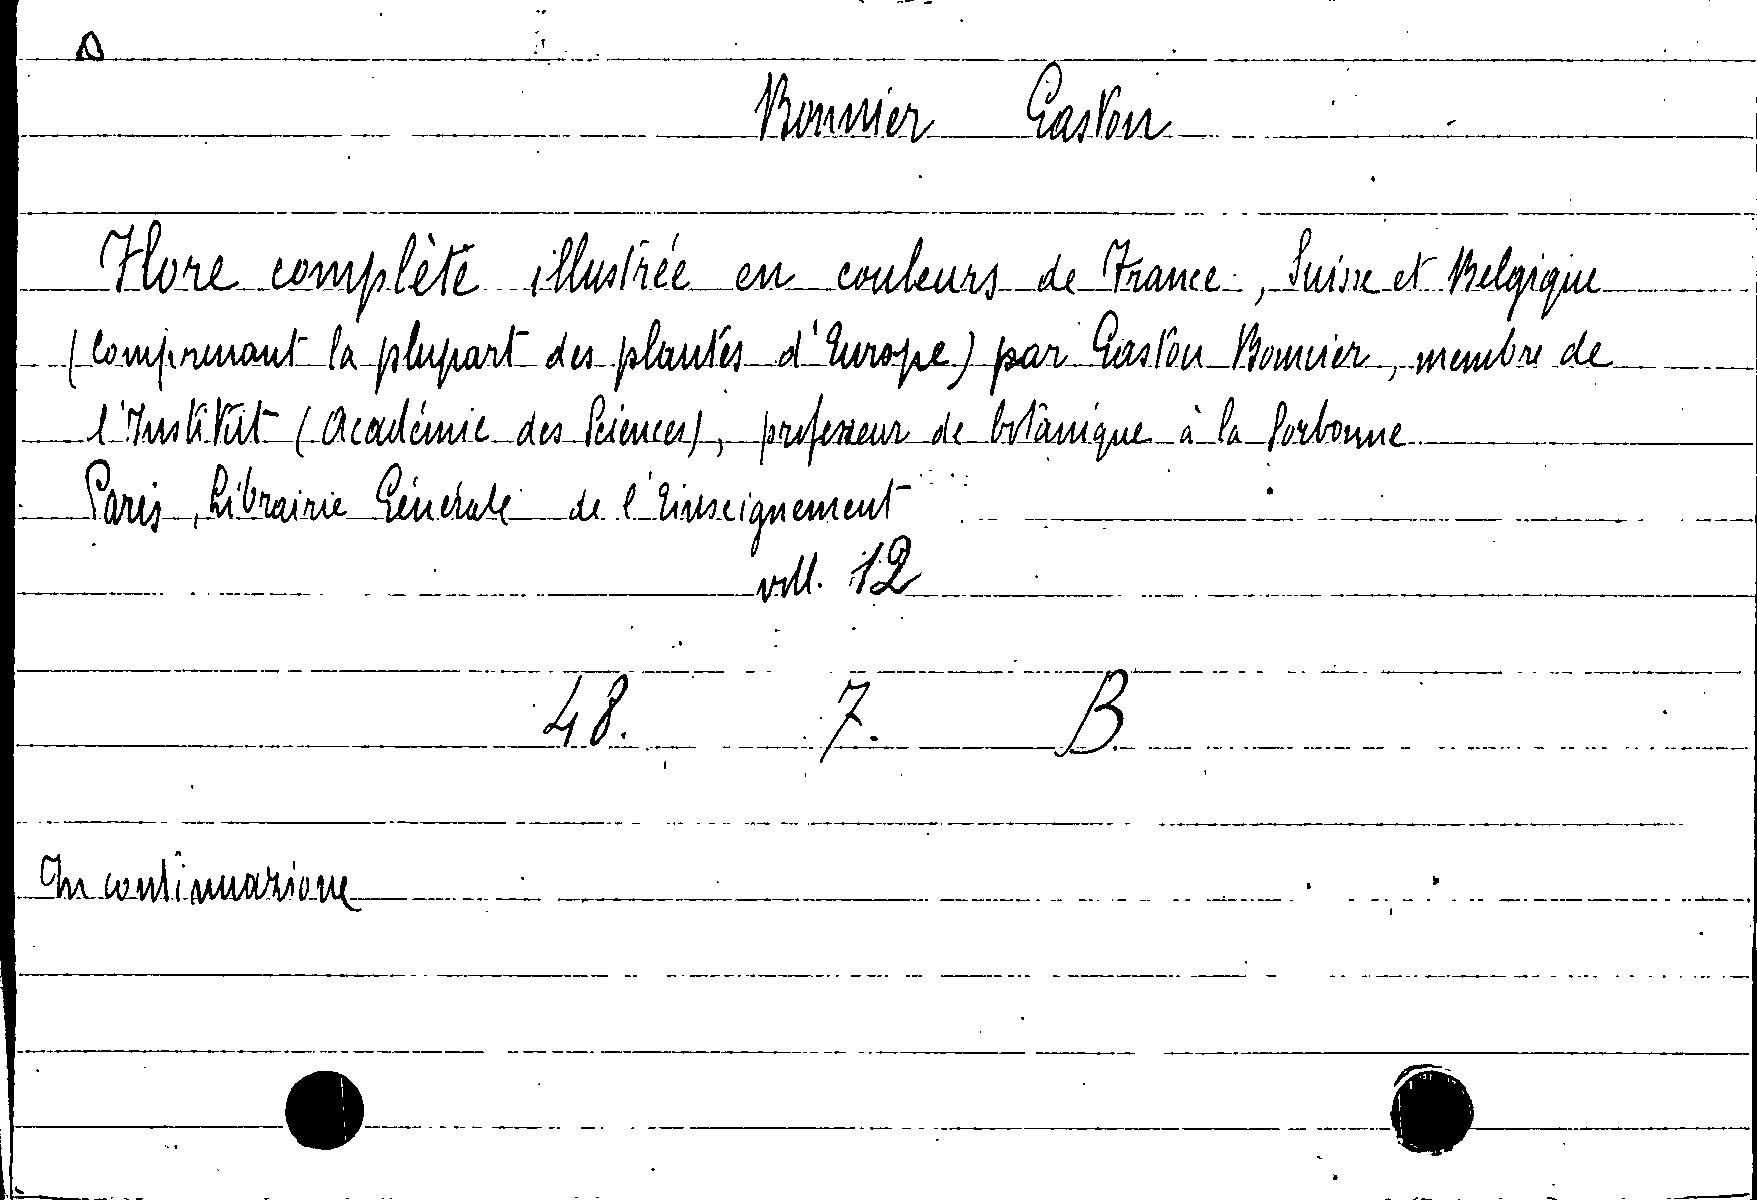 Bonnier Gaston
Flore complète illustrée en couleurs de France, Suisse et Belgique
(comprenant la plupart des plantes d'Europe) par Gaston Bonnier, membre de
l'Institut (Académie des Sciences), professeur de botanique à la Sorbonne
Paris, Librairie Générale de l'Einseignement
voll. 12
48. 7. B.
In continuazione